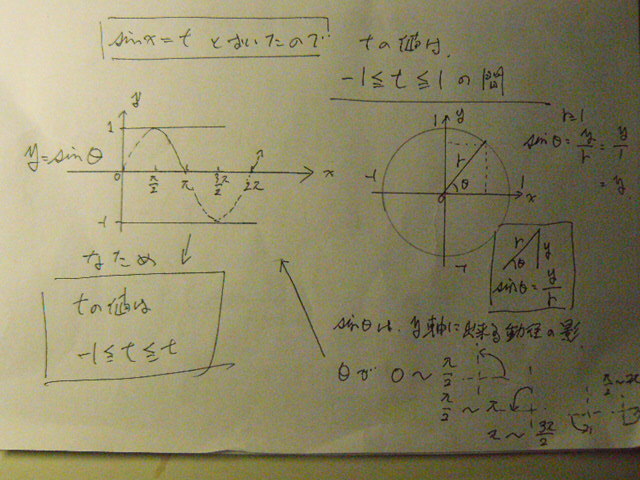 sinx=t とおいたので
tの値は
-1≦t≦1 の間
y
1
y=sinθ
0
π/2
π
3π/2
2π
x
-1
なため
tの値は
-1≦t≦t
1 y
r
θ
-1
0
1
x
-1
r=1
sinθ=y/r=y/1
=y
r
θ
y
sinθ=y/r
sinθは、y軸に出来る動径の影
θが 0~π/2
π/2~π
π~3π/2